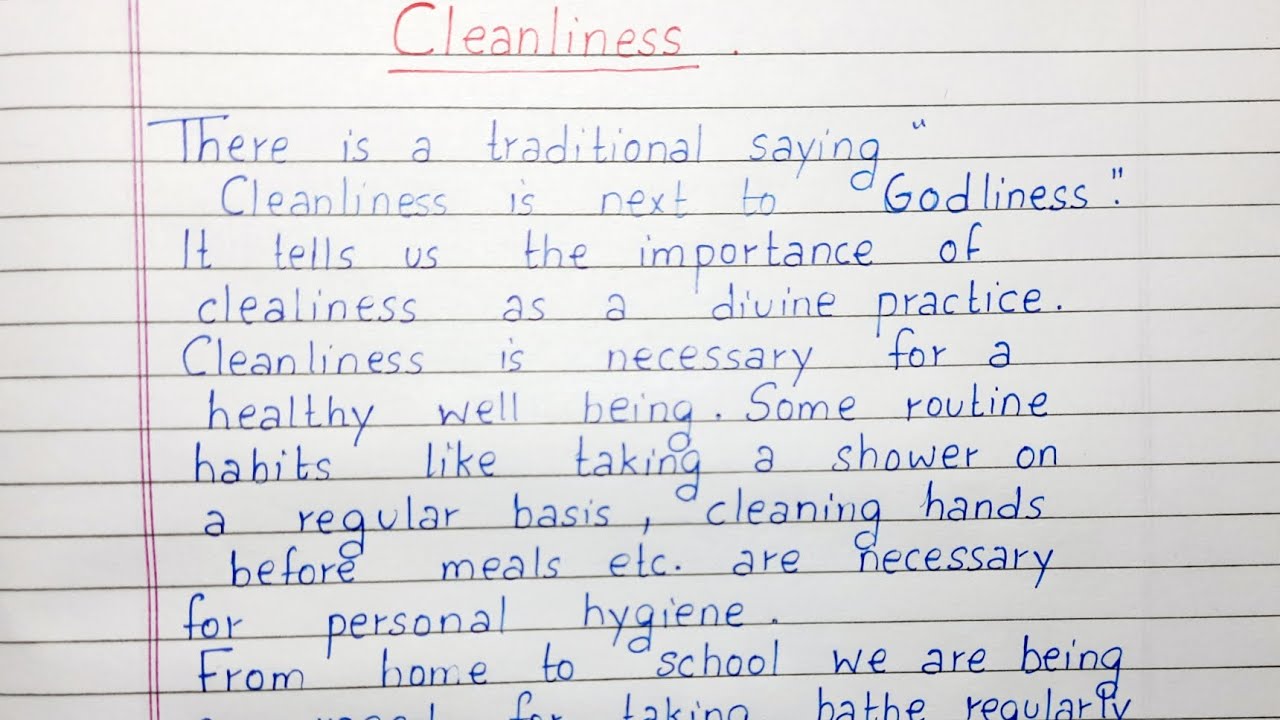 Cleanliness .
There is a traditional saying "
Cleanliness is next to Godliness".
It tells us the importance of
clealiness as a divine practice.
Cleanliness is necessary for a
healthy well being. Some routine
habits like taking a shower on
a regular basis, cleaning hands
before meals etc. are necessary
for personal hygiene.
From home to school we are being
for taking bathe regularly